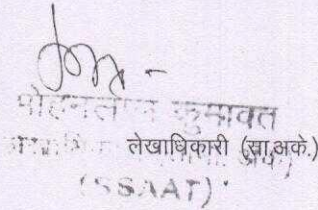 मोहनलाल कुमावत
लेखाधिकारी (सा.अके.)
(SSAAT)